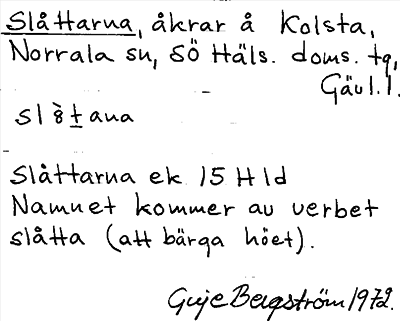 Slåttarna, åkrar å Kolsta,
Norrala sn, SÖ Häls. doms. tg,
Gävl. l.
slɔ̀ṯana
Slåttarna ek 15 Hld
Namnet kommer av verbet
slåtta (att bärga höet).
Guje Bergström 1972.